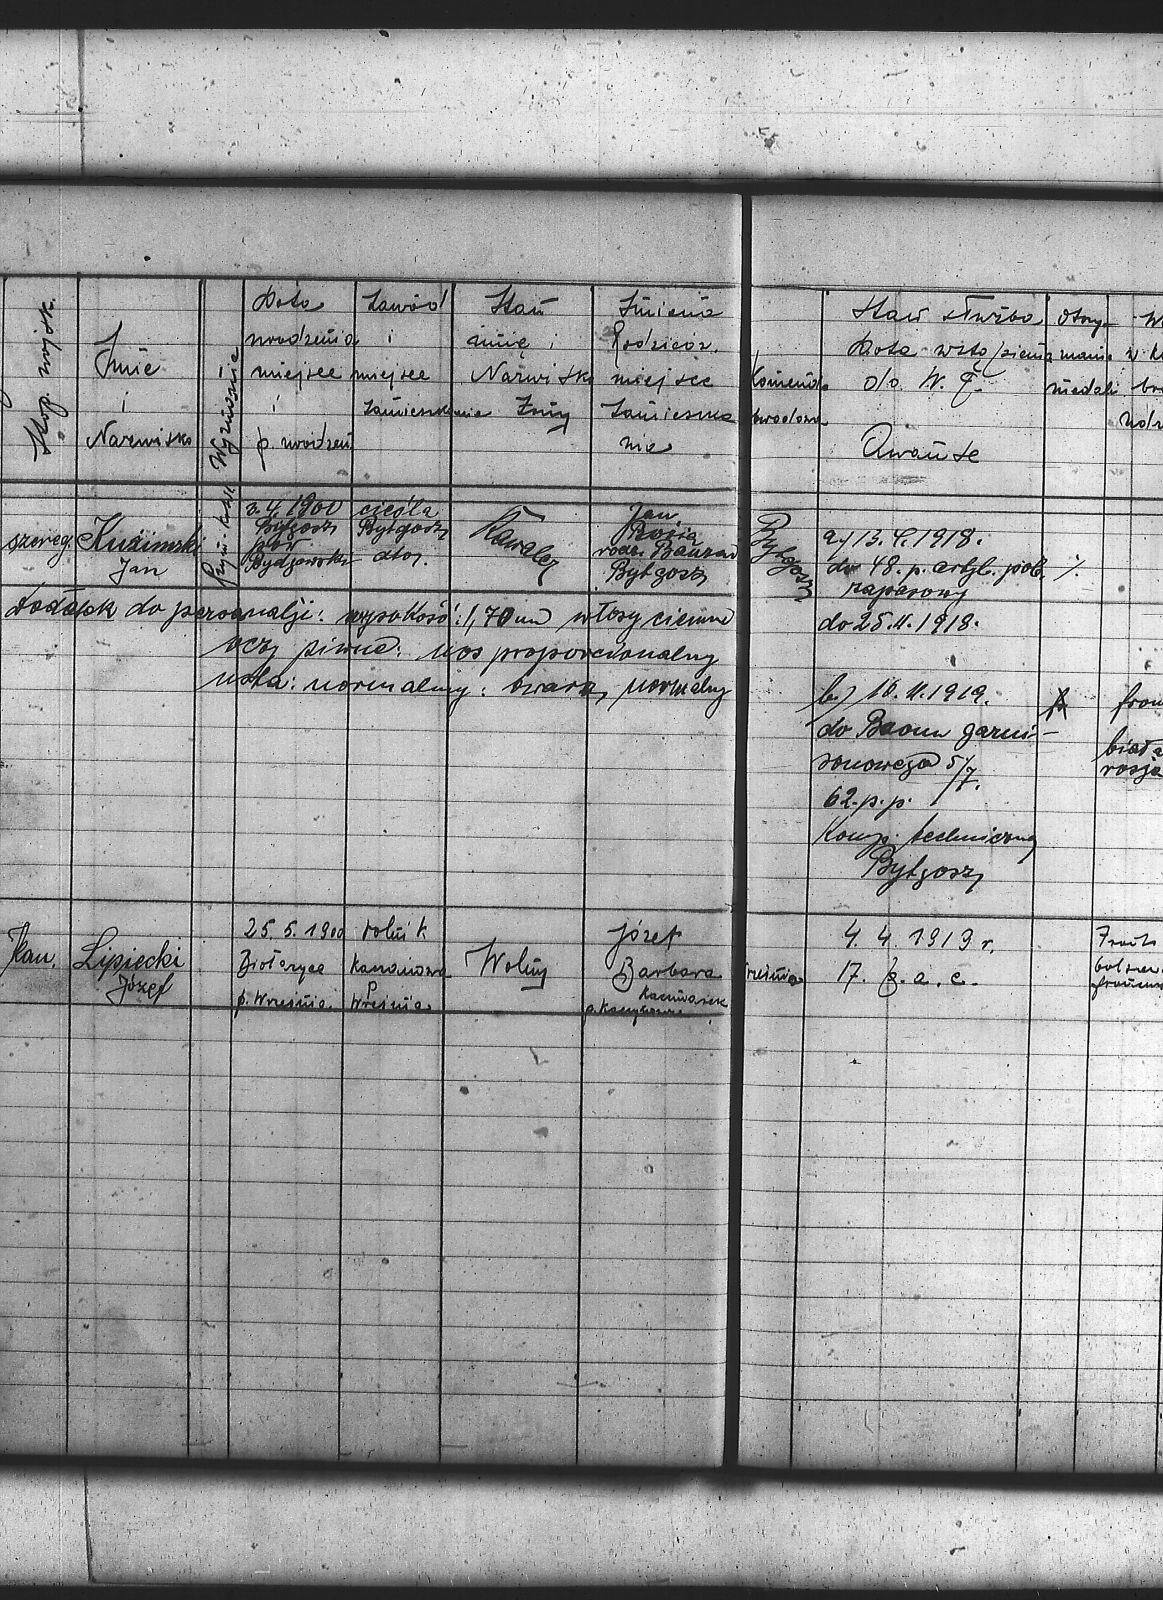 Stop. wojsk.
Imie
i
Nazwisko
i Wyznanie
Data
urodzenia
miejsce
i
p. urodzen
Zawód
i
miejsce
zamieszkania
Stan
imię i
Nazwisko
Żony
Imiona
Rodziców.
miejsce
Zamieszka
nia
Komenda
Stan służba
Data wstąpienia
do W. P.
Awanse
Otrzy-
manie
medali
szereg.
Kuzimski
Jan
Rzym. kat.
3.4.1900
Bydgoszcz
pow.
Bydgowski
cieśla
Bydgoszcz
dto.
Kawaler
Jan
Rozia
rodz.
Bydgoszcz
Bydgoszcz
a) 13.4.1918.
do 48. p. artyl. pol.
zapasowy
do 25.11.1918.
Dodatek do personalji: wysokość: 1,70 cm włosy ciemne
oczy piwne: nos proporcionalny
usta: normalny: twarz, normalny
b) 10.11.1919.
do Baonu garni-
zonowego 5/7.
62. p. p.
Komp. techniczna
Bydgoszcz
fron
biało
rosja
Kan.
Lipiecki
Józef
25.5.1900
p. Września.
rolnik
p
Września
Wolny
Józef
Barbara
Kaczmarek
Września
4. 4. 1919 r.
17. p. a. c.
Front